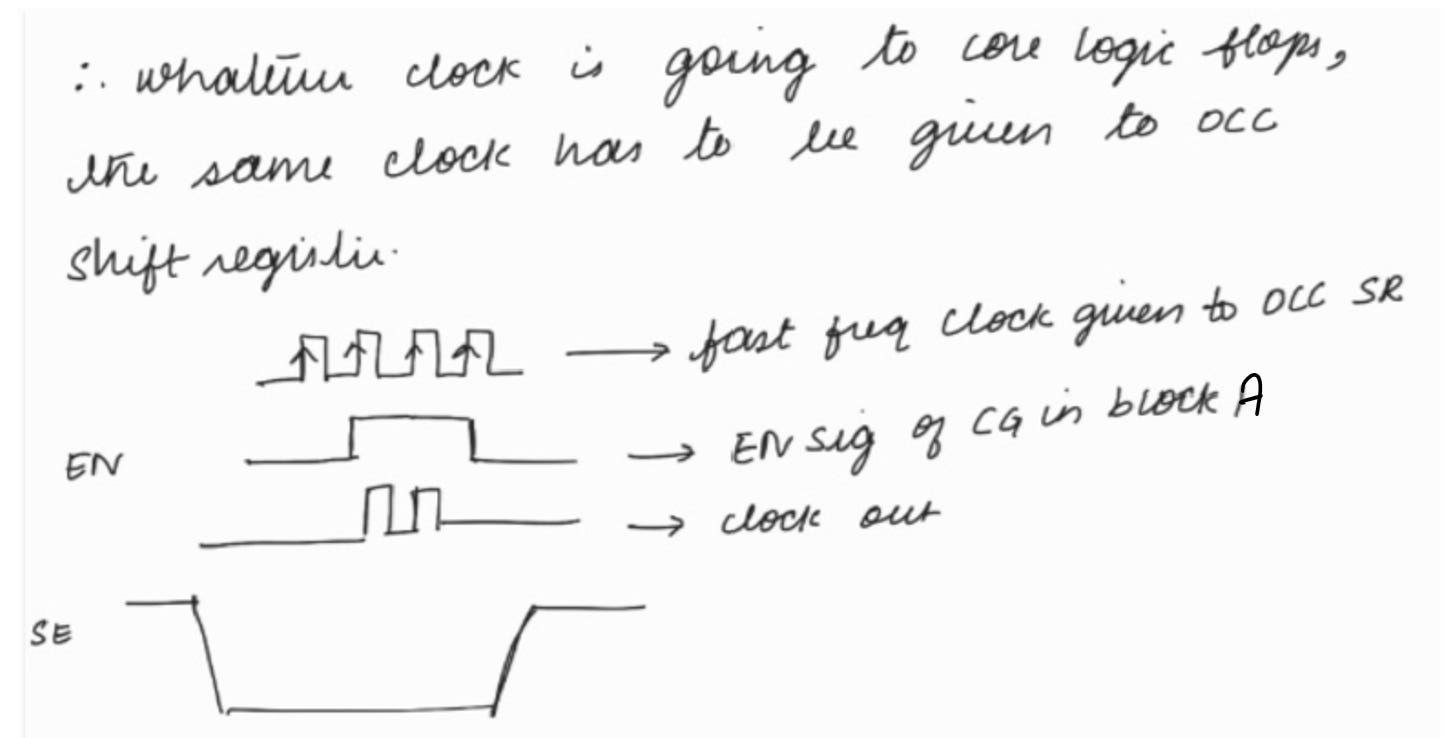 ∴ whatever clock is going to core logic flops,
the same clock has to be given to OCC
shift register.
→ fast freq clock given to OCC SR
EN → EN sig of CG in block A
→ clock out
SE